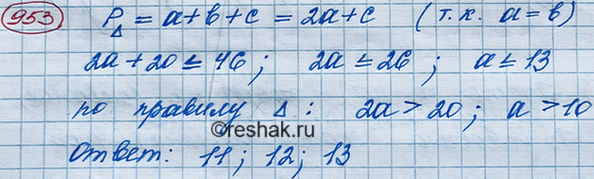 953 P△ = a+b+c = 2a+c (т.к. a=b)
2a+20≤46; 2a≤26; a≤13
по правилу △: 2a>20; a>10
©reshak.ru
Ответ: 11; 12; 13